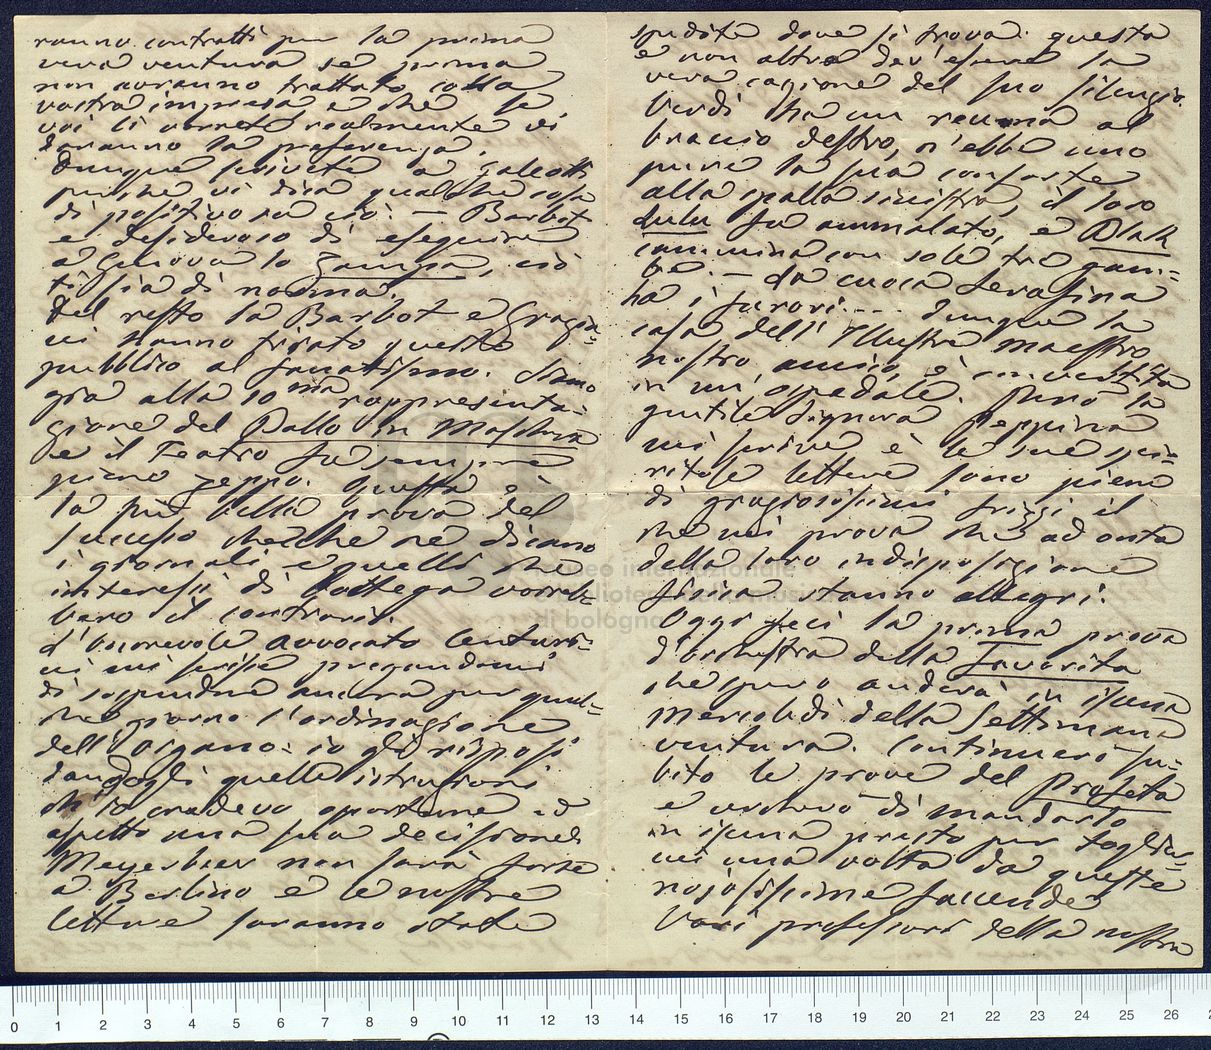 ranno contratti per la prima
vera ventura se prima
non avranno trattato colla
vostra impresa e che se
voi li vorrete realmente vi
daranno la preferenza.
Dunque scrivete a Galeotti
perché vi dica qualche cosa
di positivo su ciò. — Barbot
è desideroso di eseguire
a Genova lo Zampa, ciò
ti sia di norma.
Del resto la Barbot e Grazia-
ni hanno tirato questo
pubblico al fanatismo. Siamo
già alla 10ma rappresenta-
zione del Ballo in Maschera
e il Teatro fu sempre
pieno zeppo. Questa è
la più bella prova del
successo checché ne dicano
i giornali e quelli che
interessi di bottega vorreb-
bero il contrario.
L'onorevole avvocato Centuri-
ni mi scrisse pregandomi
di sospendere ancora per qual-
che giorno l'ordinazione
dell'organo: io gli risposi
dandogli quelle istruzioni
ch'io credevo oportune ed
aspetto una sua decisione.
Meyerbeer non sarà forse
a Berlino e le nostre
lettere saranno state
spedite dove si trova: questa
e non altra dev'essere la
vera cagione del suo silenzio.
Verdi ha un reuma al
braccio destro, n'ebbe uno
pure la sua consorte
alla spalla sinistra, il loro
Lulu fu ammalato, e Blach
cammina con sole tre gam-
be. — La cuoca Serafina
ha i furori.... dunque la
casa dell'Illustre maestro
nostro amico, è convertita
in un'ospedale. Però la
gentile Signora Peppina
mi scrive e le sue spi-
ritose lettere sono piene
di graziosissimi frizzi il
che mi prova che ad onta
della loro indisposizione
fisica stanno allegri.
Oggi feci la prima prova
d'orchestra della Favorita
che spero anderà in iscena
Mercoledì della Settimana
ventura. Continuerò su-
bito le prove del Profeta
e cercherò di mandarlo
in iscena presto per toglier-
mi una volta da queste
nojosissime faccende
Varj professori della nostra
museo internazionale
e biblioteca della musica
di bologna
0 1 2 3 4 5 6 7 8 9 10 11 12 13 14 15 16 17 18 19 20 21 22 23 24 25 26 2